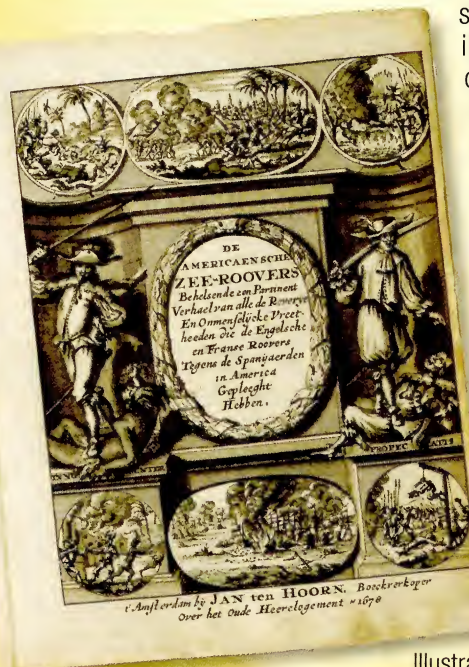 s
i
c
DE
AMERICAENSCHE
ZEE-ROOVERS
Behelsende een Pertinent
Verhael van alle de Roverye
En Onmenselijcke Vreet-
heeden die de Engelsche
en Franse Roovers
Tegens de Spanjaerden
in America
Gepleeght
Hebben.
PROPEC ATIS
t'Amsterdam by JAN ten HOORN, Boeckverkoper
Over het Oude Heerelogement Aº 1678
Illustra